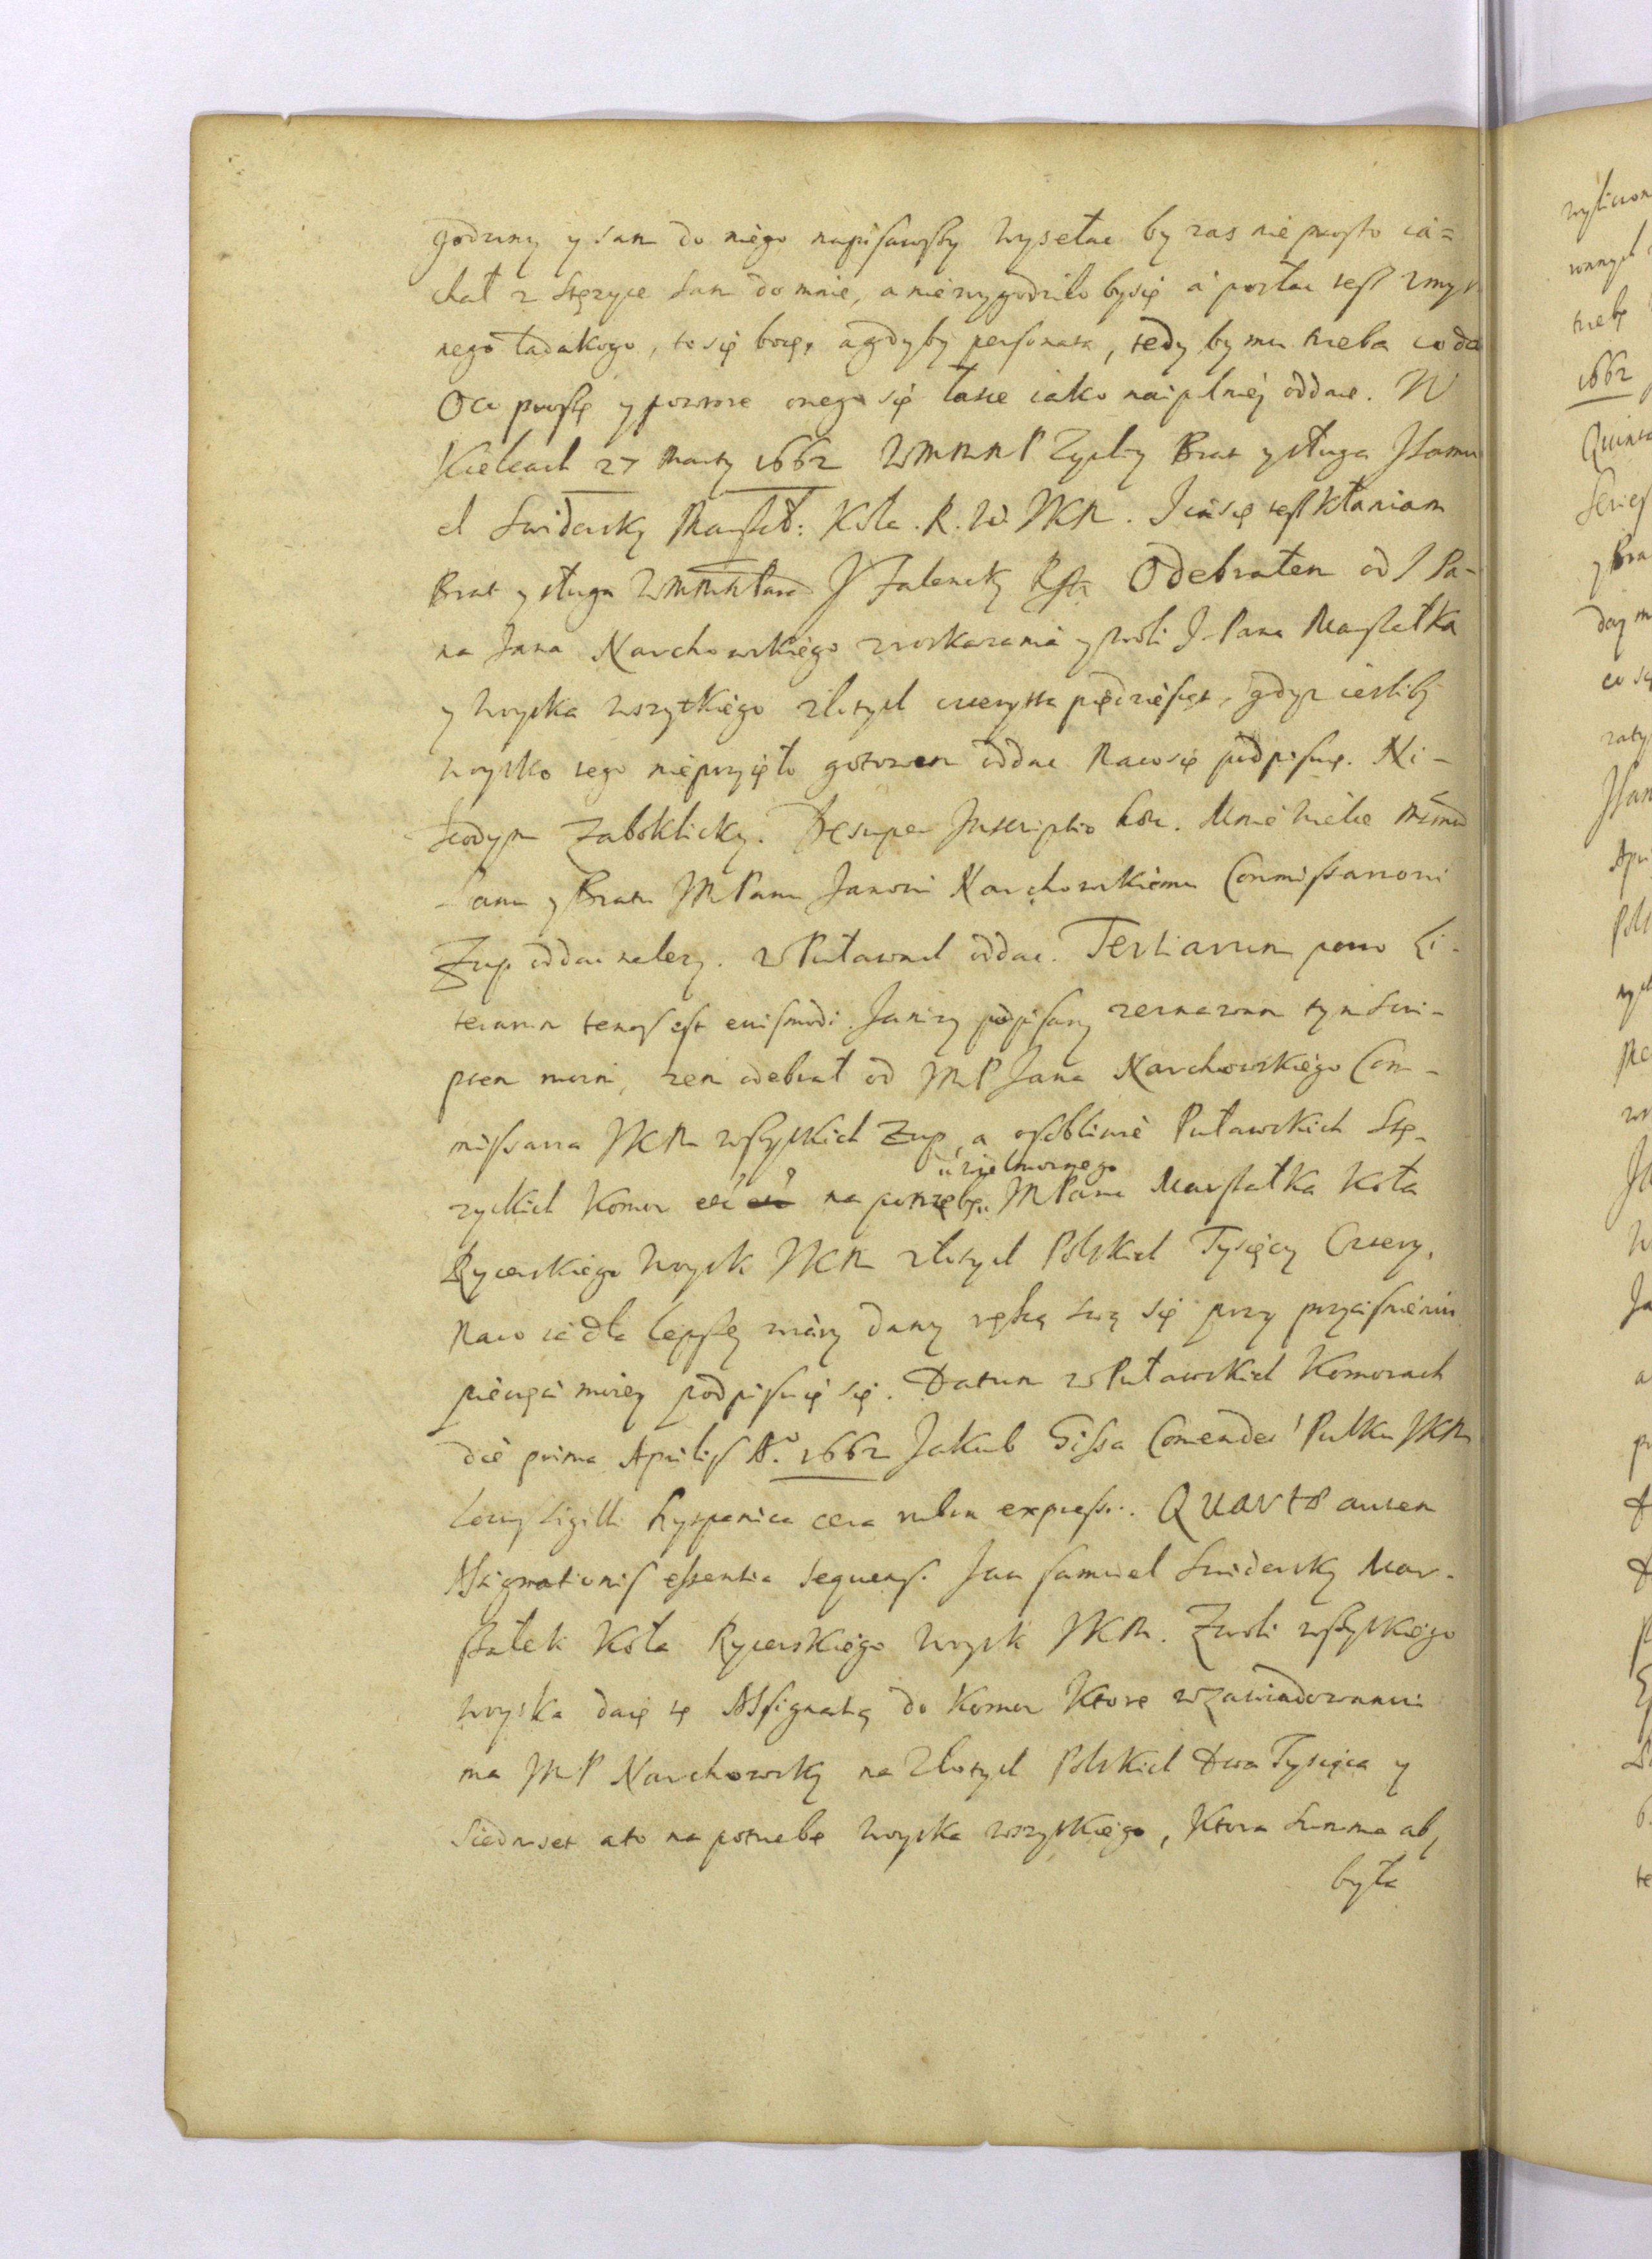 godziny y sam do niego napisawszy wysełac by zas nie prosto ia=
chał z Stęzyce sam do mnie, a niewygodziło bysię a posłac tesz zmyśl
nego ladakogo, to się boię, agdyby personata, tedy by mu trzeba co da
Oco proszę y powtore onego się łasce iako naipilniej oddaie. W
Kielcach 27 Marty 1662 WMMMP Zycliwy Brat y sługa J Samu
el Swidersky Marszał: Koła. R. W. JKM. Jasię tesz kłaniam
Brat y sługa WMMM Pana J Zalencky Odebrałem od J Pa-
na Jana Narchowskiego zroskazania y woli J Pana Marszałka
y woyska wszytkiego złotych czterysta pięcdziesiąt, gdyz iesliby
woysko tego nieprzyięło gotowem oddac Nacosię podpisuię. Ni-
kodym Zaboklicky. Desuper Inscriptio haec. Mnie wielce memu
Panu y Bratu JMPanu Janowi Narchowskiemu Commissarzowi
Zup oddac nalezy. w Puławach oddac. Tertiarum porro Li-
terarum tenor est eiusmodi. Ja nizy podpisany zeznawam tym Scri-
ptem moim, zem odebrał od JMP Jana Narchowskiego Com-
missarza JKM wszystkich Zup, a osobliwie Puławskich Stę-
zyckich Komor na potrzebę JMPana Marszałka Koła
Rycerskiego Woysk JKM złotych Polskich Tysięcy Cztery.
Naco ia dla lepszey wiary dany ręką swą się przy przycisnieniu
pieczęci moiey podpisuię się. Datum w Puławskich Komorach
die prima Aprilis Aº. 1662 Jakub Gissa Comender Pułku JKM
Locus Sigilli hyspanica cera rubra expressi. Quarto autem
Assignationis essentia sequens. Jan Samuel Swidersky Mar-
szałek Koła Rycerskiego Woysk JKM. Zwoli wszytkiego
woyska daię tę Assignatą do Komor Ktore wzawiadowaniu
ma JMP Narchowsky na Złotych Polskich Dwa Tysiąca y
Siedmset ato na potrzebę woyska wszytkiego, Ktora summa aby
była